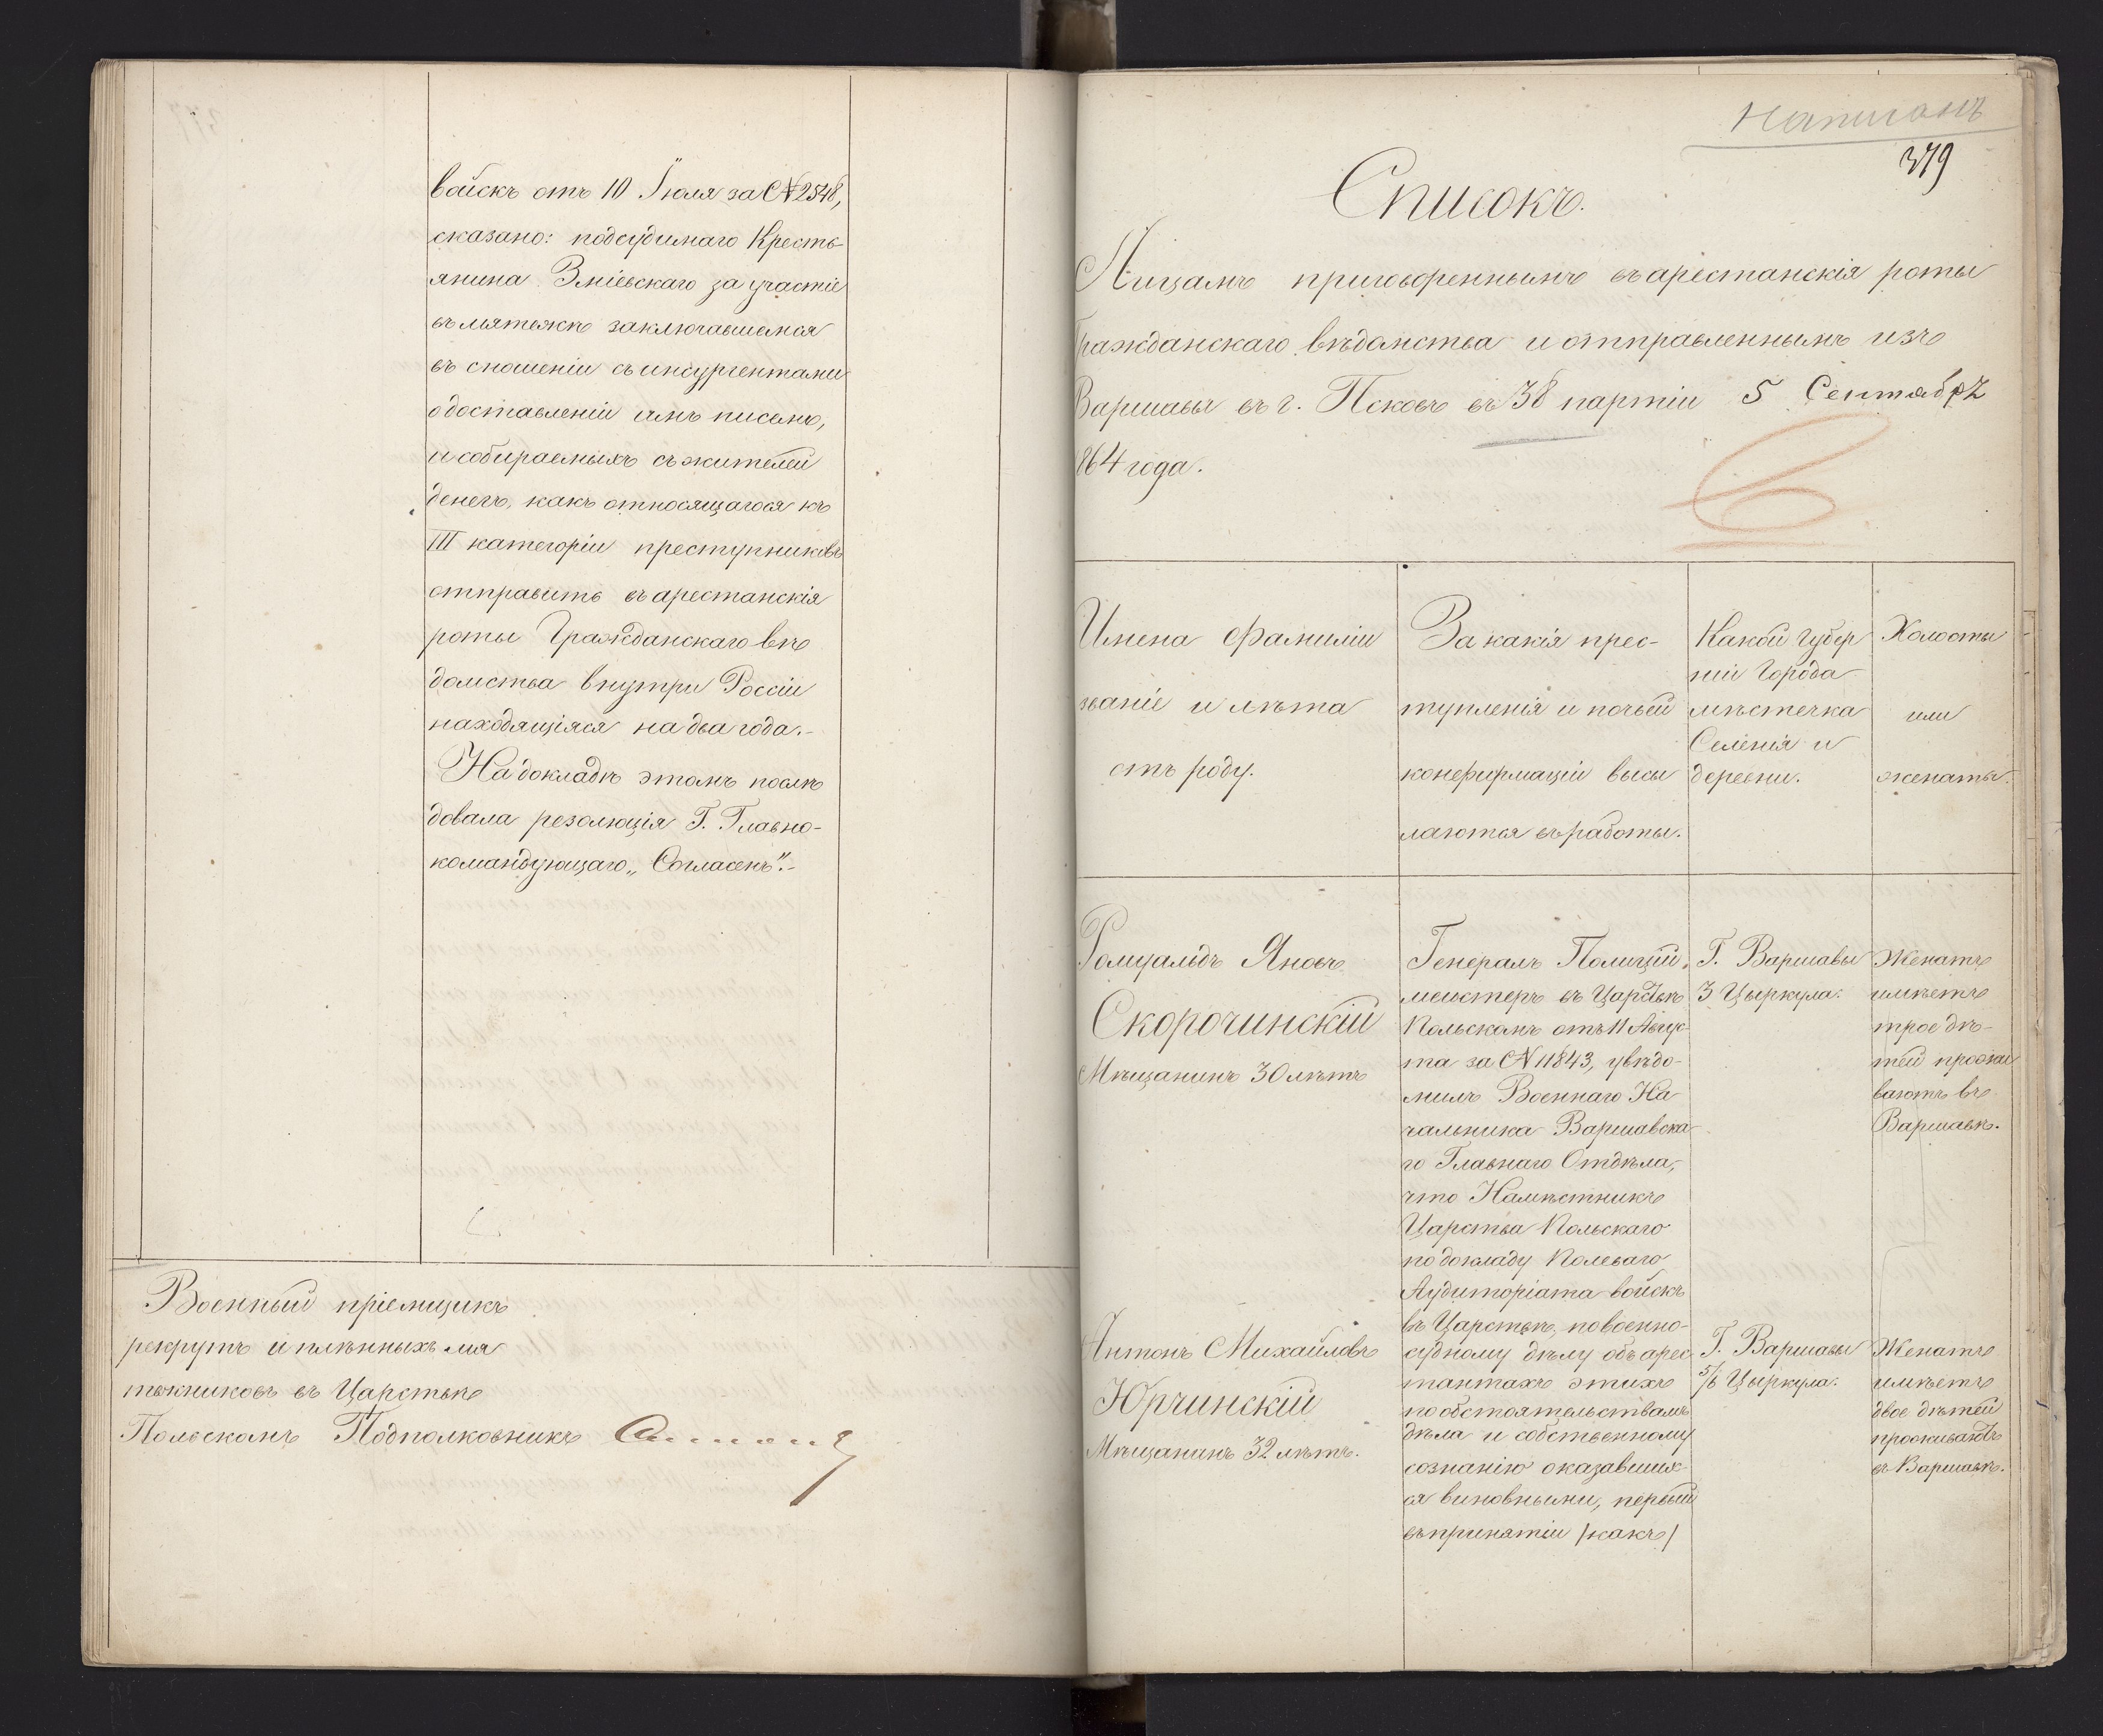 войскъ отъ 10 Іюля за № 2548,
сказано: подсудимаго Кресть-
янина Зміевскаго за участіе
въ мятежѣ заключавшемся
въ сношеніи съ инсургентами
о доставленіи имъ писемъ,
и собираемыхъ съ жителей
денегъ, какъ относящагося къ
III категоріи преступниковъ
отправить въ арестанскія
роты Гражданскаго вѣ
домства внутри Россіи
находящіяся на два года.-
На докладѣ этомъ послѣ
довала резолюція Г. Главно-
командующаго „Согласенъ".-
Военный пріемщикъ
рекрутъ и плѣнныхъ мя
тежниковъ въ Царствѣ
Польскомъ Подполковникъ
Написанъ
379
Списокъ.
Лицамъ приговореннымъ въ арестанскія роты
Гражданскаго вѣдомства и отправленнымъ изъ
Варшавы въ г. Псковъ въ 38 партіи 5 Сентября
1864 года.
Имена фамиліи
званіе и лѣта
отъ роду.
За какія прес-
тупленія и почьей
конфирмаціи высы
лаются въ работы.
Какой Губер
ніи Города
мѣстечка
Селенія и
деревни.
Холосты
или
женаты.
Ромуальдъ Яновъ
Скорочинскій
Мѣщанинъ 30 лѣтъ
Генералъ Полицій-
мейстеръ въ Царствѣ
Польскомъ отъ 11 Авгус-
та за № 11843, увѣдо-
милъ Военнаго На
чальника Варшавска-
го Главнаго Отдѣла,
что Намѣстникъ
Царства Польскаго
по докладу Полеваго
Аудиторіата войскъ
въ Царствѣ, по военно-
судному дѣлу объ арес
тантахъ этихъ
по обстоятельствамъ
дѣла и собственному
сознанію оказавших
ся виновными, первый
въ принятіи /какъ/
Г. Варшавы
3 Цыркула.
Женатъ
имѣетъ
трое дѣ-
тей прожи
ваютъ въ
Варшавѣ.
Антонъ Михайловъ
Юрчинскій
Мѣщанинъ 32 лѣтъ.
Г. Варшавы
5/6 Цыркула.
Женатъ
имѣетъ
двое дѣтей
проживаютъ
въ Варшавѣ.